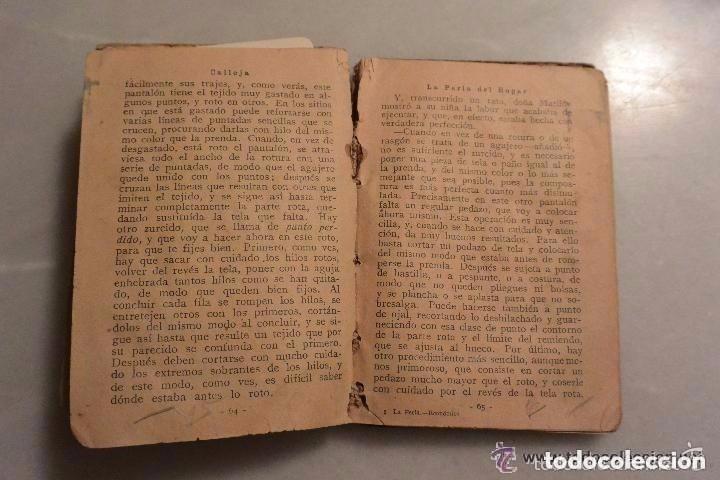 Calleja
fácilmente sus trajes, y, como verás, este
pantalón tiene el tejido muy gastado en al-
gunos puntos, y roto en otros. En los sitios
en que está gastado puede reforzarse con
varias líneas de puntadas sencillas que se
crucen, procurando darlas con hilo del mis-
mo color que la prenda. Cuando, en vez de
desgastado, está roto el pantalón, se atra-
viesa todo el ancho de la rotura con una
serie de puntadas, de modo que el agujero
quede unido con los puntos; después se
cruzan las líneas que resultan con otras que
imiten el tejido, y se sigue así hasta ter-
minar completamente la parte rota, que-
dando sustituída la tela que falta. Hay
otro zurcido, que se llama de punto per-
dido, y que voy a hacer ahora en este roto,
para que te fijes bien. Primero, como ves,
hay que sacar con cuidado los hilos rotos,
volver del revés la tela, poner con la aguja
enhebrada tantos hilos como se han quita-
do, de modo que queden bien fijos. Al
concluir cada fila se rompen los hilos, se
entretejen otros con los primeros, cortán-
dolos del mismo modo al concluir, y se si-
gue así hasta que resulte un tejido que por
su parecido se confunda con el primero.
Después deben cortarse con mucho cuida-
do los extremos sobrantes de los hilos, y
de este modo, como ves, es difícil saber
dónde estaba antes lo roto.
- 64 -
La Perla del Hogar
Y, transcurrido un rato, doña Matilde
mostró a su niña la labor que acababa de
ejecutar, y que, en efecto, estaba hecha con
verdadera perfección.
—Cuando en vez de una rotura o de un
rasgón se trata de un agujero —añadió—,
no es suficiente el zurcido, y es necesario
poner una pieza de tela o paño igual al de
la prenda, y del mismo color o lo más se-
mejante que sea posible, pues la compos-
tura es más perfecta cuanto más disimu-
lada. Precisamente en este otro pantalón
falta un regular pedazo, que voy a colocar
ahora mismo. Esta operación es muy sen-
cilla, y, cuando se hace con cuidado y aten-
ción, da muy buenos resultados. Para ello
basta cortar un pedazo de tela y colocarlo
del mismo modo que estaba antes de rom-
perse la prenda. Después se sujeta a punto
de bastilla, o a pespunte, o a costura, de
modo que no queden pliegues ni bolsas,
y se plancha o se aplasta para que no so-
bresalga. Puede hacerse también a punto
de ojal, recortando lo deshilachado y guar-
neciendo con esa clase de punto el contorno
de la parte rota y el límite del remiendo,
que se ajusta al hueco. Por último, hay
otro procedimiento más sencillo, aunque me-
nos primoroso, que consiste en cortar un
pedazo mucho mayor que el roto, y coserle
con cuidado por el revés de la tela rota.
- 65 -
La Perla.—Económica
todocoleccion.net